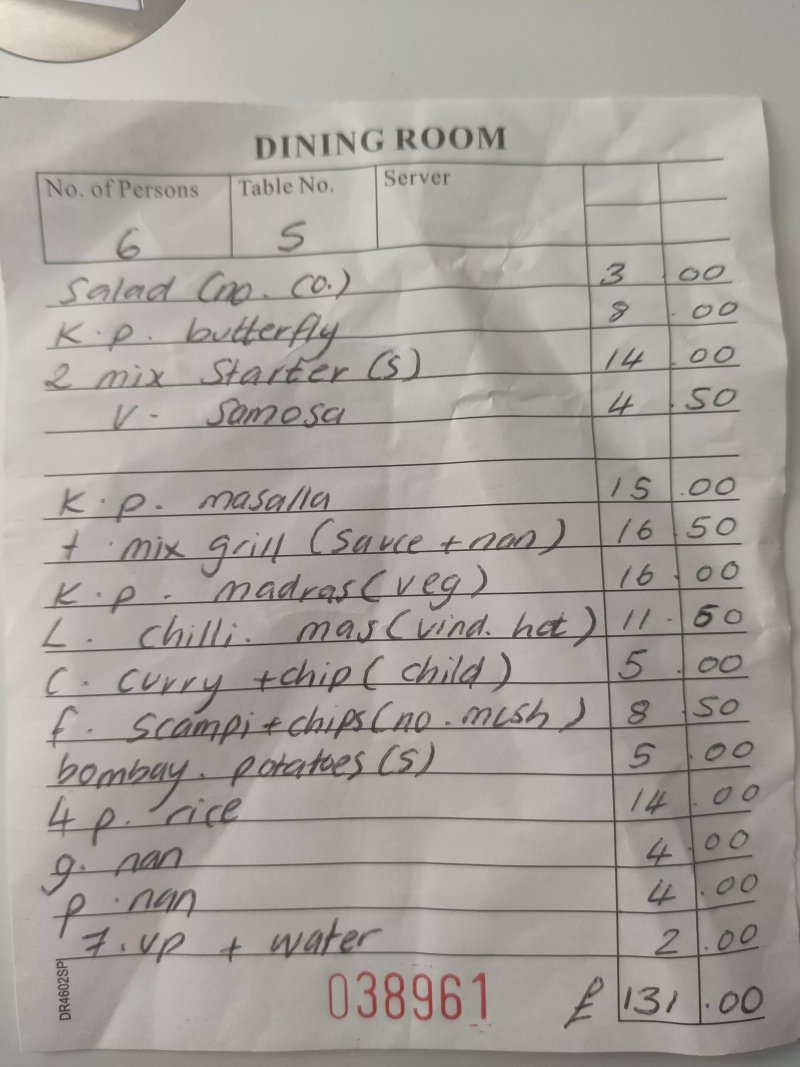 DINING ROOM
No. of Persons Table No. Server
6 5
Salad (no. co.) 3 .00
K.p. butterfly 8 .00
2 mix Starter (s) 14 .00
V. Samosa 4 .50
K.p. masalla 15 .00
t. mix grill (sauce + nan) 16 50
K.p. madras (veg) 16 .00
L. chilli. mas (vind. hot) 11 .50
C. curry + chip (child) 5 .00
f. scampi + chips (no. mush) 8 .50
bombay. potatoes (s) 5 .00
4 p. rice 14 .00
g. nan 4 .00
p. nan 4 .00
7.up + water 2 .00
DR4602SP
038961 £ 131 .00